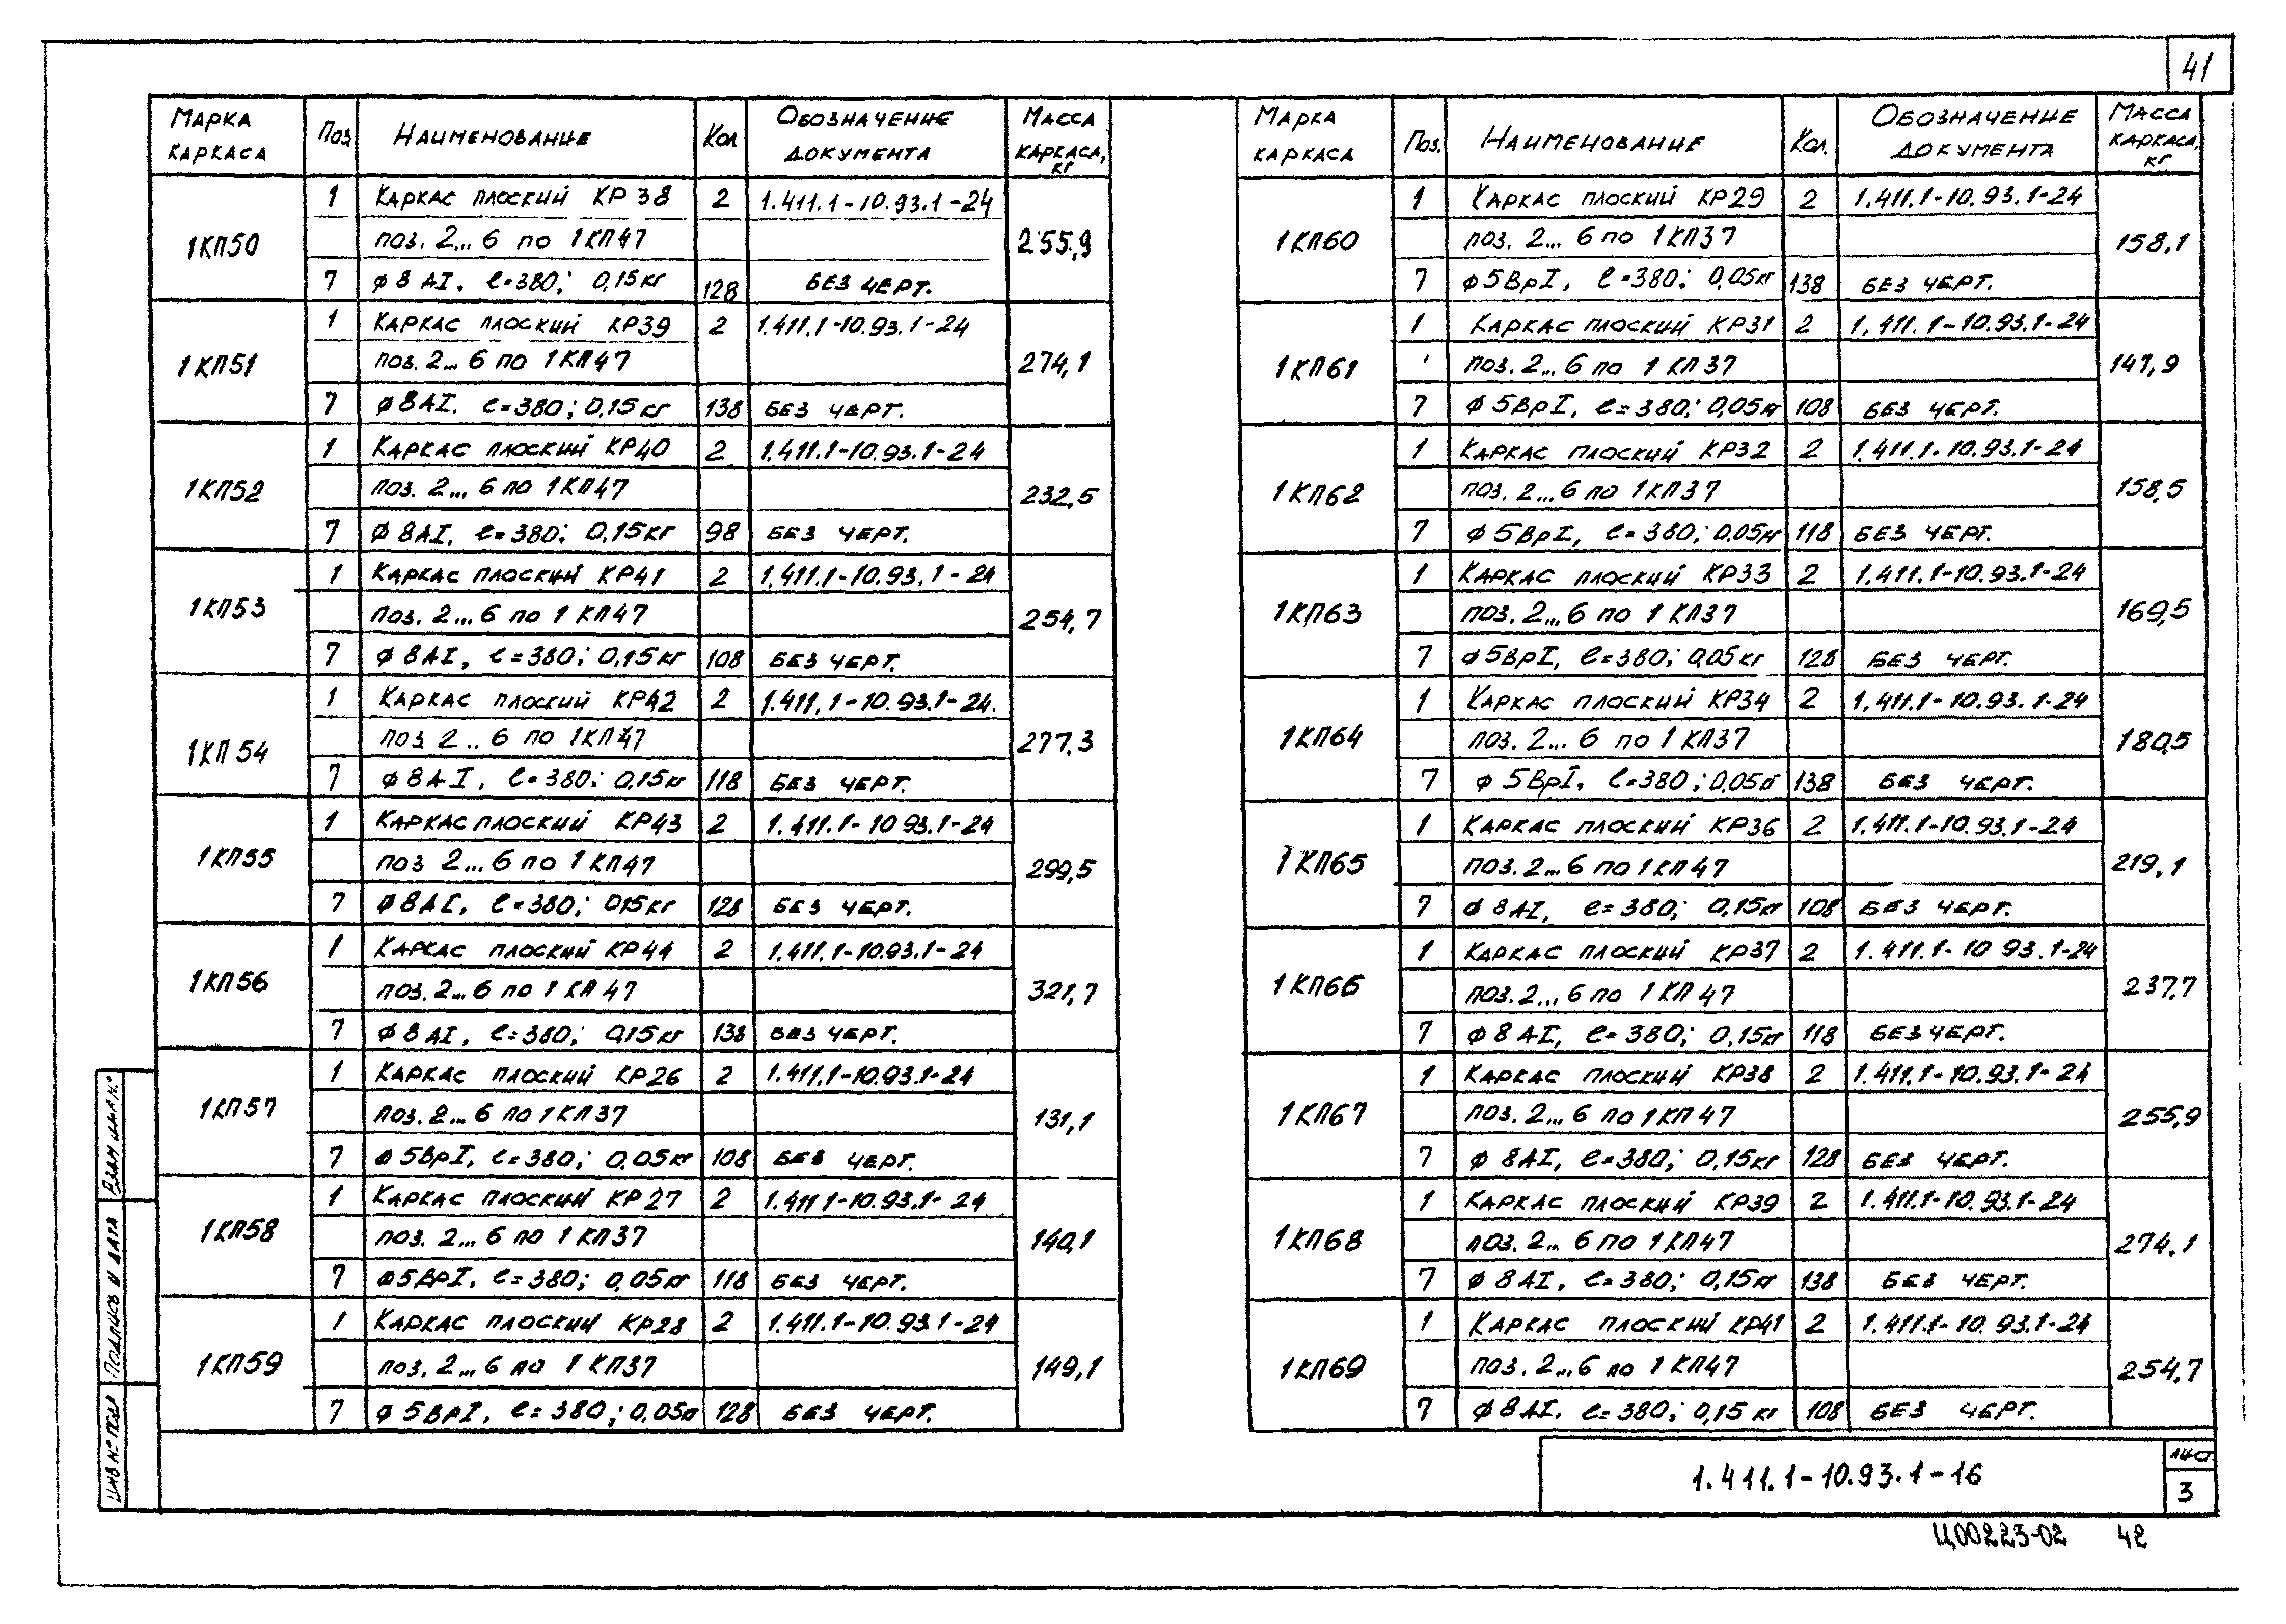 41
Марка каркаса | Поз | Наименование | Кол | Обозначение документа | Масса каркаса, кг
1КП50 | 1 | Каркас плоский КР38 | 2 | 1.411.1-10.93.1-24 | 255,9
поз. 2...6 по 1КП47
7 | ф8АI, ℓ=380; 0,15кг | 128 | без черт.
1КП51 | 1 | Каркас плоский КР39 | 2 | 1.411.1-10.93.1-24 | 274,1
поз. 2...6 по 1КП47
7 | ф8АI, ℓ=380; 0,15кг | 138 | без черт.
1КП52 | 1 | Каркас плоский КР40 | 2 | 1.411.1-10.93.1-24 | 232,5
поз. 2...6 по 1КП47
7 | ф8АI, ℓ=380; 0,15кг | 98 | без черт.
1КП53 | 1 | Каркас плоский КР41 | 2 | 1.411.1-10.93.1-24 | 254,7
поз. 2...6 по 1КП47
7 | ф8АI, ℓ=380; 0,15кг | 108 | без черт.
1КП54 | 1 | Каркас плоский КР42 | 2 | 1.411.1-10.93.1-24. | 277,3
поз 2..6 по 1КП47
7 | ф8АI, ℓ=380; 0,15кг | 118 | без черт.
1КП55 | 1 | Каркас плоский КР43 | 2 | 1.411.1-10 93.1-24 | 299,5
поз 2...6 по 1КП47
7 | ф8АI, ℓ=380; 0,15кг | 128 | без черт.
1КП56 | 1 | Каркас плоский КР44 | 2 | 1.411.1-10.93.1-24 | 321,7
поз. 2...6 по 1КП47
7 | ф8АI, ℓ=380; 0,15кг | 138 | без черт.
1КП57 | 1 | Каркас плоский КР26 | 2 | 1.411.1-10.93.1-24 | 131,1
поз. 2...6 по 1КП37
7 | ф5ВрI, ℓ=380; 0,05кг | 108 | без черт.
1КП58 | 1 | Каркас плоский КР27 | 2 | 1.411 1-10.93.1-24 | 140,1
поз. 2...6 по 1КП37
7 | ф5ВрI, ℓ=380; 0,05кг | 118 | без черт.
1КП59 | 1 | Каркас плоский КР28 | 2 | 1.411.1-10.93.1-24 | 149,1
поз. 2...6 по 1КП37
7 | ф5ВрI, ℓ=380; 0,05кг | 128 | без черт.
Марка каркаса | Поз. | Наименование | Кол. | Обозначение документа | Масса каркаса, кг
1КП60 | 1 | Каркас плоский КР29 | 2 | 1.411.1-10.93.1-24 | 158,1
поз. 2...6 по 1КП37
7 | ф5ВрI, ℓ=380; 0,05кг | 138 | без черт.
1КП61 | 1 | Каркас плоский КР31 | 2 | 1.411.1-10.93.1-24 | 147,9
поз. 2...6 по 1КП37
7 | ф5ВрI, ℓ=380; 0,05кг | 108 | без черт.
1КП62 | 1 | Каркас плоский КР32 | 2 | 1.411.1-10.93.1-24 | 158,5
поз. 2...6 по 1КП37
7 | ф5ВрI, ℓ=380; 0,05кг | 118 | без черт.
1КП63 | 1 | Каркас плоский КР33 | 2 | 1.411.1-10.93.1-24 | 169,5
поз. 2...6 по 1КП37
7 | ф5ВрI, ℓ=380; 0,05кг | 128 | без черт.
1КП64 | 1 | Каркас плоский КР34 | 2 | 1.411.1-10.93.1-24 | 180,5
поз. 2...6 по 1КП37
7 | ф5ВрI, ℓ=380; 0,05кг | 138 | без черт.
1КП65 | 1 | Каркас плоский КР36 | 2 | 1.411.1-10.93.1-24 | 219,1
поз. 2...6 по 1КП47
7 | ф8АI, ℓ=380; 0,15кг | 108 | без черт.
1КП66 | 1 | Каркас плоский КР37 | 2 | 1.411.1-10 93.1-24 | 237,7
поз. 2...6 по 1КП47
7 | ф8АI, ℓ=380; 0,15кг | 118 | без черт.
1КП67 | 1 | Каркас плоский КР38 | 2 | 1.411.1-10.93.1-24 | 255,9
поз. 2...6 по 1КП47
7 | ф8АI, ℓ=380; 0,15кг | 128 | без черт.
1КП68 | 1 | Каркас плоский КР39 | 2 | 1.411.1-10.93.1-24 | 274,1
поз. 2...6 по 1КП47
7 | ф8АI, ℓ=380; 0,15кг | 138 | без черт.
1КП69 | 1 | Каркас плоский КР41 | 2 | 1.411.1-10.93.1-24 | 254,7
поз. 2...6 по 1КП47
7 | ф8АI, ℓ=380; 0,15кг | 108 | без черт.
Взам инв н.°
Подпись и дата
Инв н° подл
1.411.1-10.93.1-16
Лист
3
Ц00223-02 42